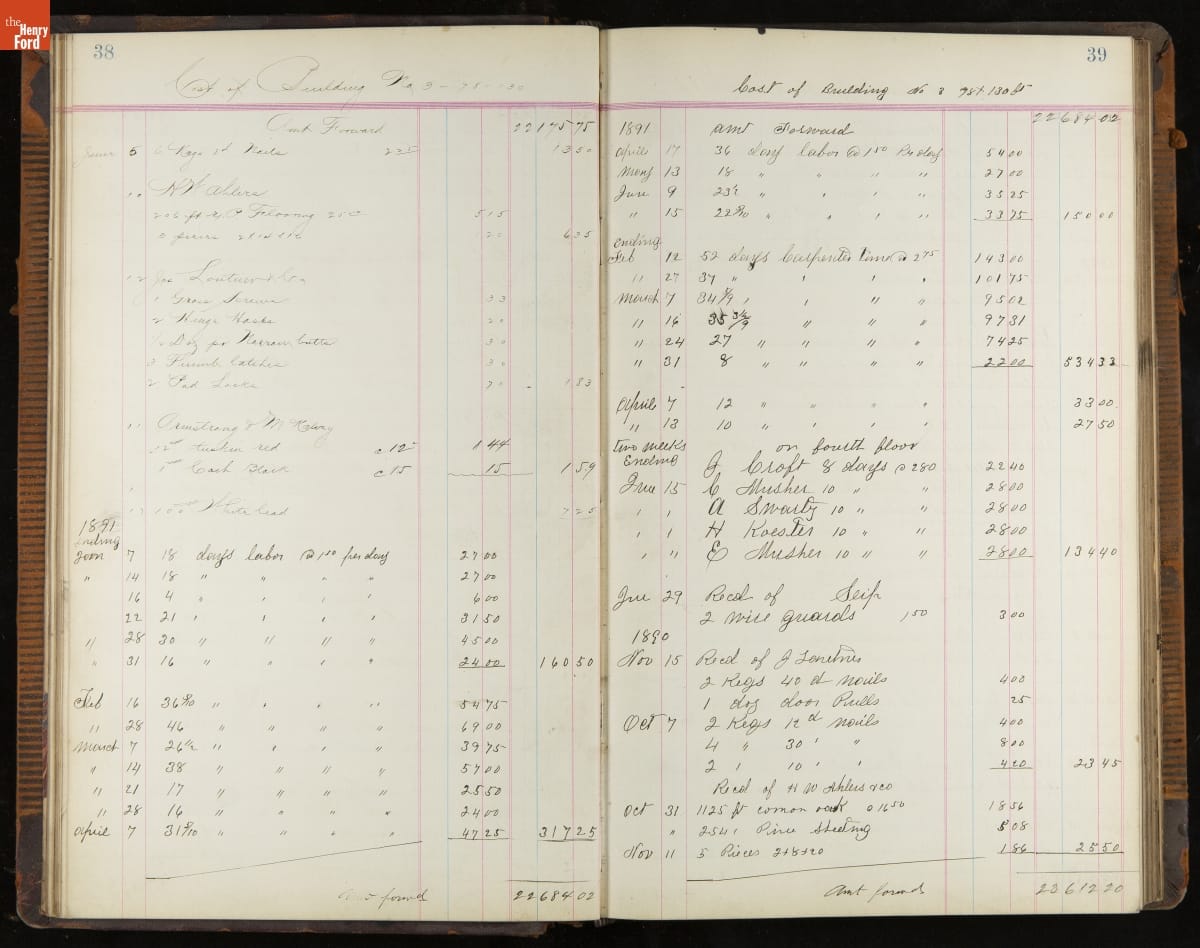 the Henry Ford
38
Cost of Building No 3 - 75 - 130
Amt Forward 22175 75
5 6 Kegs Nails 225 13 50
10 H W Ahlers
206 ft Y P Flooring 25 5 15
3 pieces 1 20 6 35
12 Jas &Co
1 Gross Screws 33
2 Hinge Hasps 20
Doz pr Narrow butts 30
3 Thumb Latches 30
2 Pad Locks 70 1 83
11 Armstrong & McKelvy
12 tuscan red @ 12 1 44
1 Cash Black @ 15 15 1 59
100 White lead 7 25
1891
Ending
7 18 days labor @ 1.50 per day 27 00
" 14 18 " " " " 27 00
16 4 " " " " 6 00
22 21 " " " " 31 50
" 28 30 " " " " 45 00
" 31 16 " " " " 24 00 160 50
Feb 16 36 5/10 " " " 54 75
" 28 46 " " " " 69 00
March 7 26 1/2 " " " " 39 75
" 14 38 " " " " 57 00
" 21 17 " " " " 25 50
" 28 16 " " " " 24 00
April 7 31 5/10 " " " " 47 25 317 25
Amt forwd 22684 02
39
Cost of Building No 3 75+130 ft
22684 02
1891 amt Forward
April 17 36 days labor @ 1 50 Per day 54 00
May 13 18 " " " " 27 00
June 9 23 1/2 " " " " 35 25
" 15 22 5/10 " " " " 33 75 150 00
Ending
Feb 12 52 days Carpenter time @ 2 75 143 00
" 27 37 " " " " 101 75
March 7 34 5/9 " " " " 95 02
" 16 35 3 1/2/9 " " " 97 31
" 24 27 " " " " 74 25
" 31 8 " " " " 22 00 533 33
April 7 12 " " " " 33 00
" 13 10 " " " " 27 50
two weeks on fourth floor
Ending J Croft 8 days @ 2 80 22 40
June 15 C Musher 10 " " 28 00
" " A Swarty 10 " " 28 00
" " H Koester 10 " " 28 00
" " E Musher 10 " " 28 00 134 40
June 29 Recd of Seip
2 wire guards 1 50 3 00
1890
Nov 15 Recd of J
2 Kegs 40 d nails 4 00
1 doz door Pulls 25
Oct 7 2 Kegs 12 d nails 4 00
4 " 30 " " 8 00
2 " 10 " " 4 20 23 45
Recd of H W Ahlers & co
Oct 31 1125 ft comon oak @ 16 50 18 56
" 254 " Pine Sheeting 5 08
Nov 11 5 Pieces 2+8+20 1 86 25 50
Amt forwd 23612 20